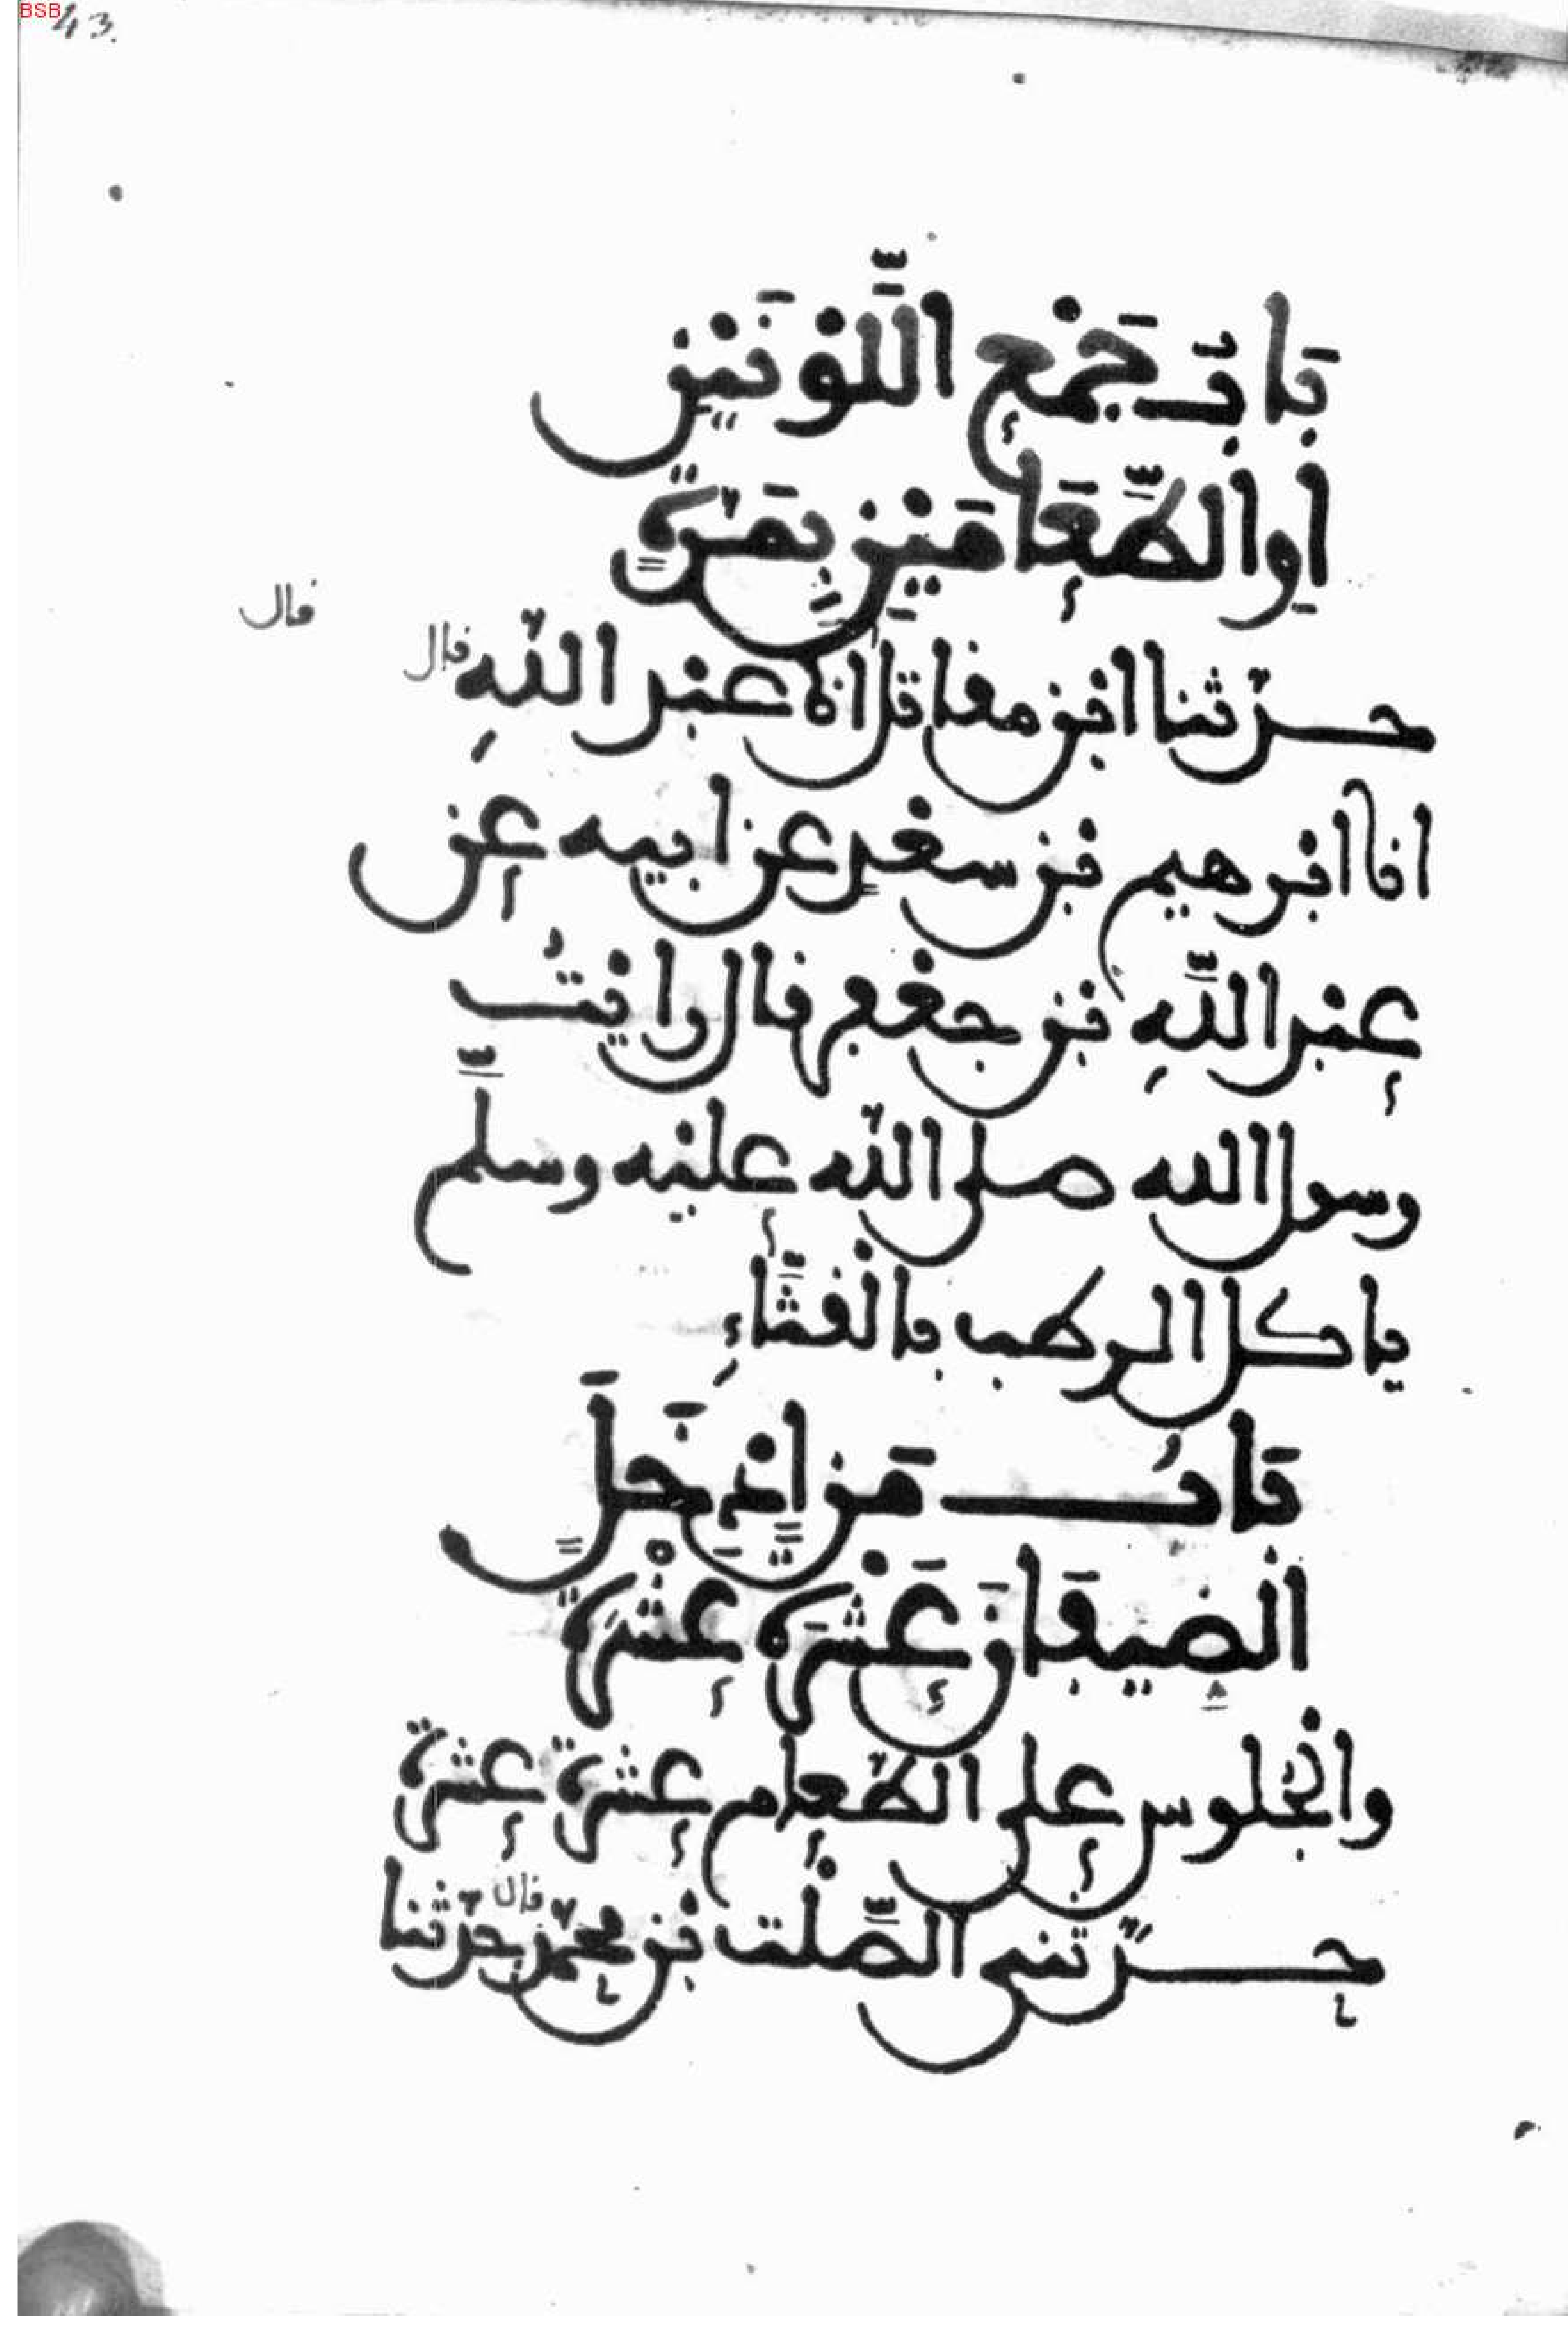 BSB
43.
بَابُ جَمْعِ اللَّوْنَيْنِ
اوِ الطَّعَامَيْنِ بِمَرَّةٍ
قال
حدّثنا ابْن مقاتل انا عبْد اللّهِ قال
انا ابْرهيم بْن سعْدٍ عن ابيه عن
عبْد اللَّهِ بْن جعْفر قال رايْتُ
رسول الله صلى اللّه عليْه وسلَّم
ياكل الرطب بالْقثَّاءِ
بَابُ مَن اَدْخَلَ
الْضِيفَانَ عَشْرَة عشْرة
والْجلوس على الطّعام عشْرة عشْرة
حدّثني الصَّلْت بْن محمّد قال حدّثنا